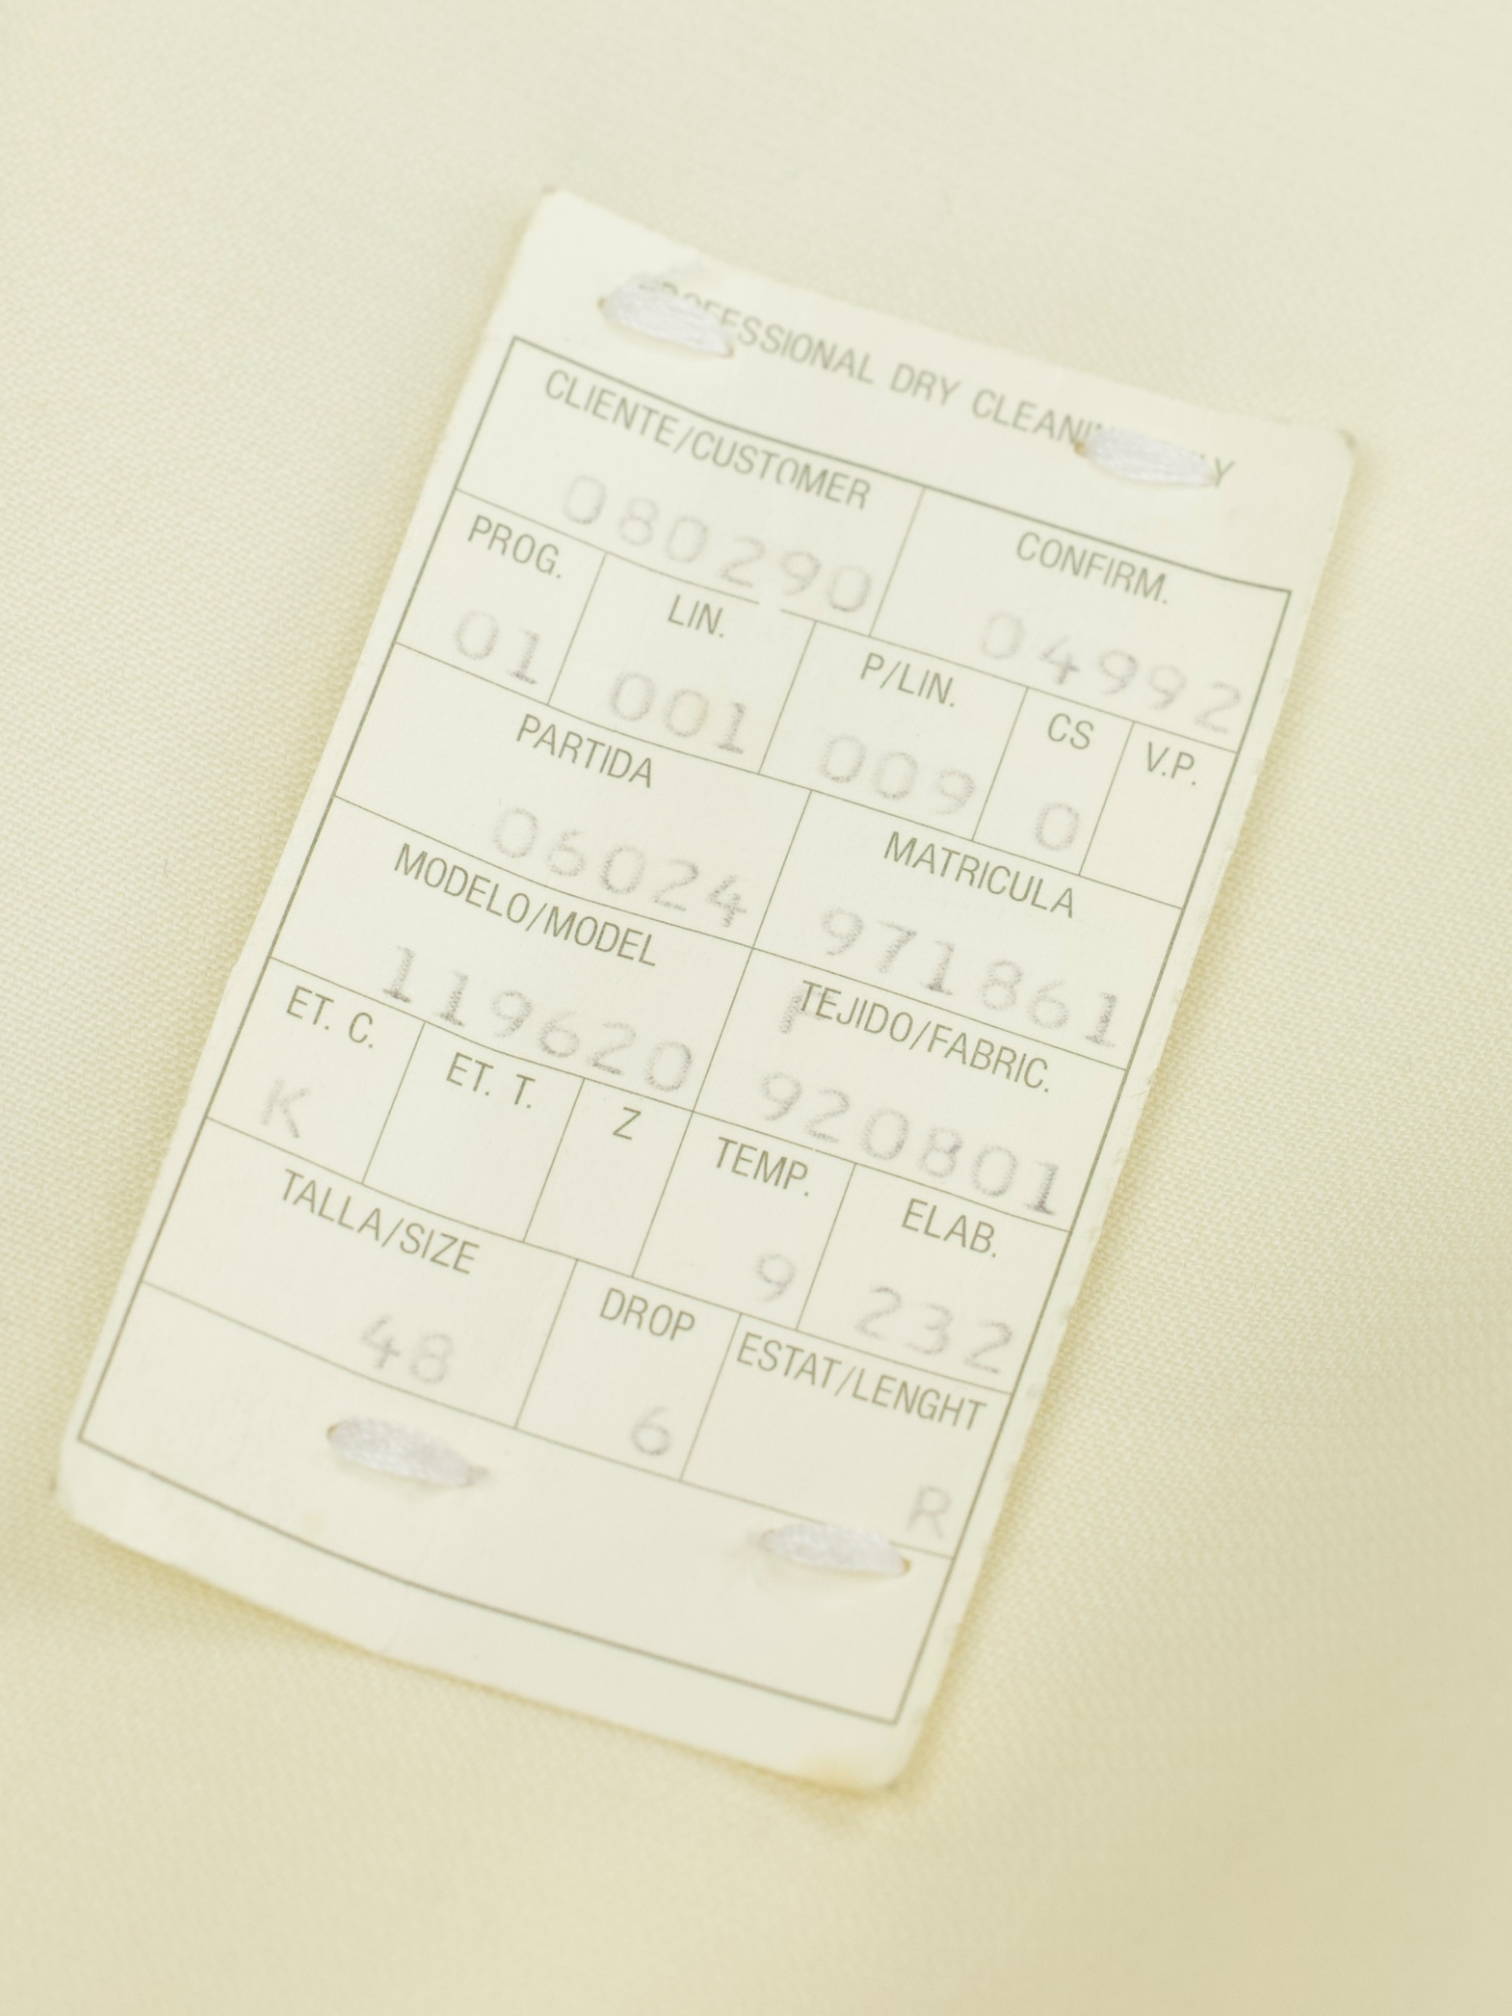 PROFESSIONAL DRY CLEANING ONLY
CLIENTE/CUSTOMER CONFIRM.
080290 04992
PROG. LIN. P/LIN. CS V.P.
01 001 009 0
PARTIDA MATRICULA
06024 971861
MODELO/MODEL TEJIDO/FABRIC.
119620 F 920801
ET. C. ET. T. Z TEMP. ELAB.
K 9 232
TALLA/SIZE DROP ESTAT/LENGHT
48 6 R